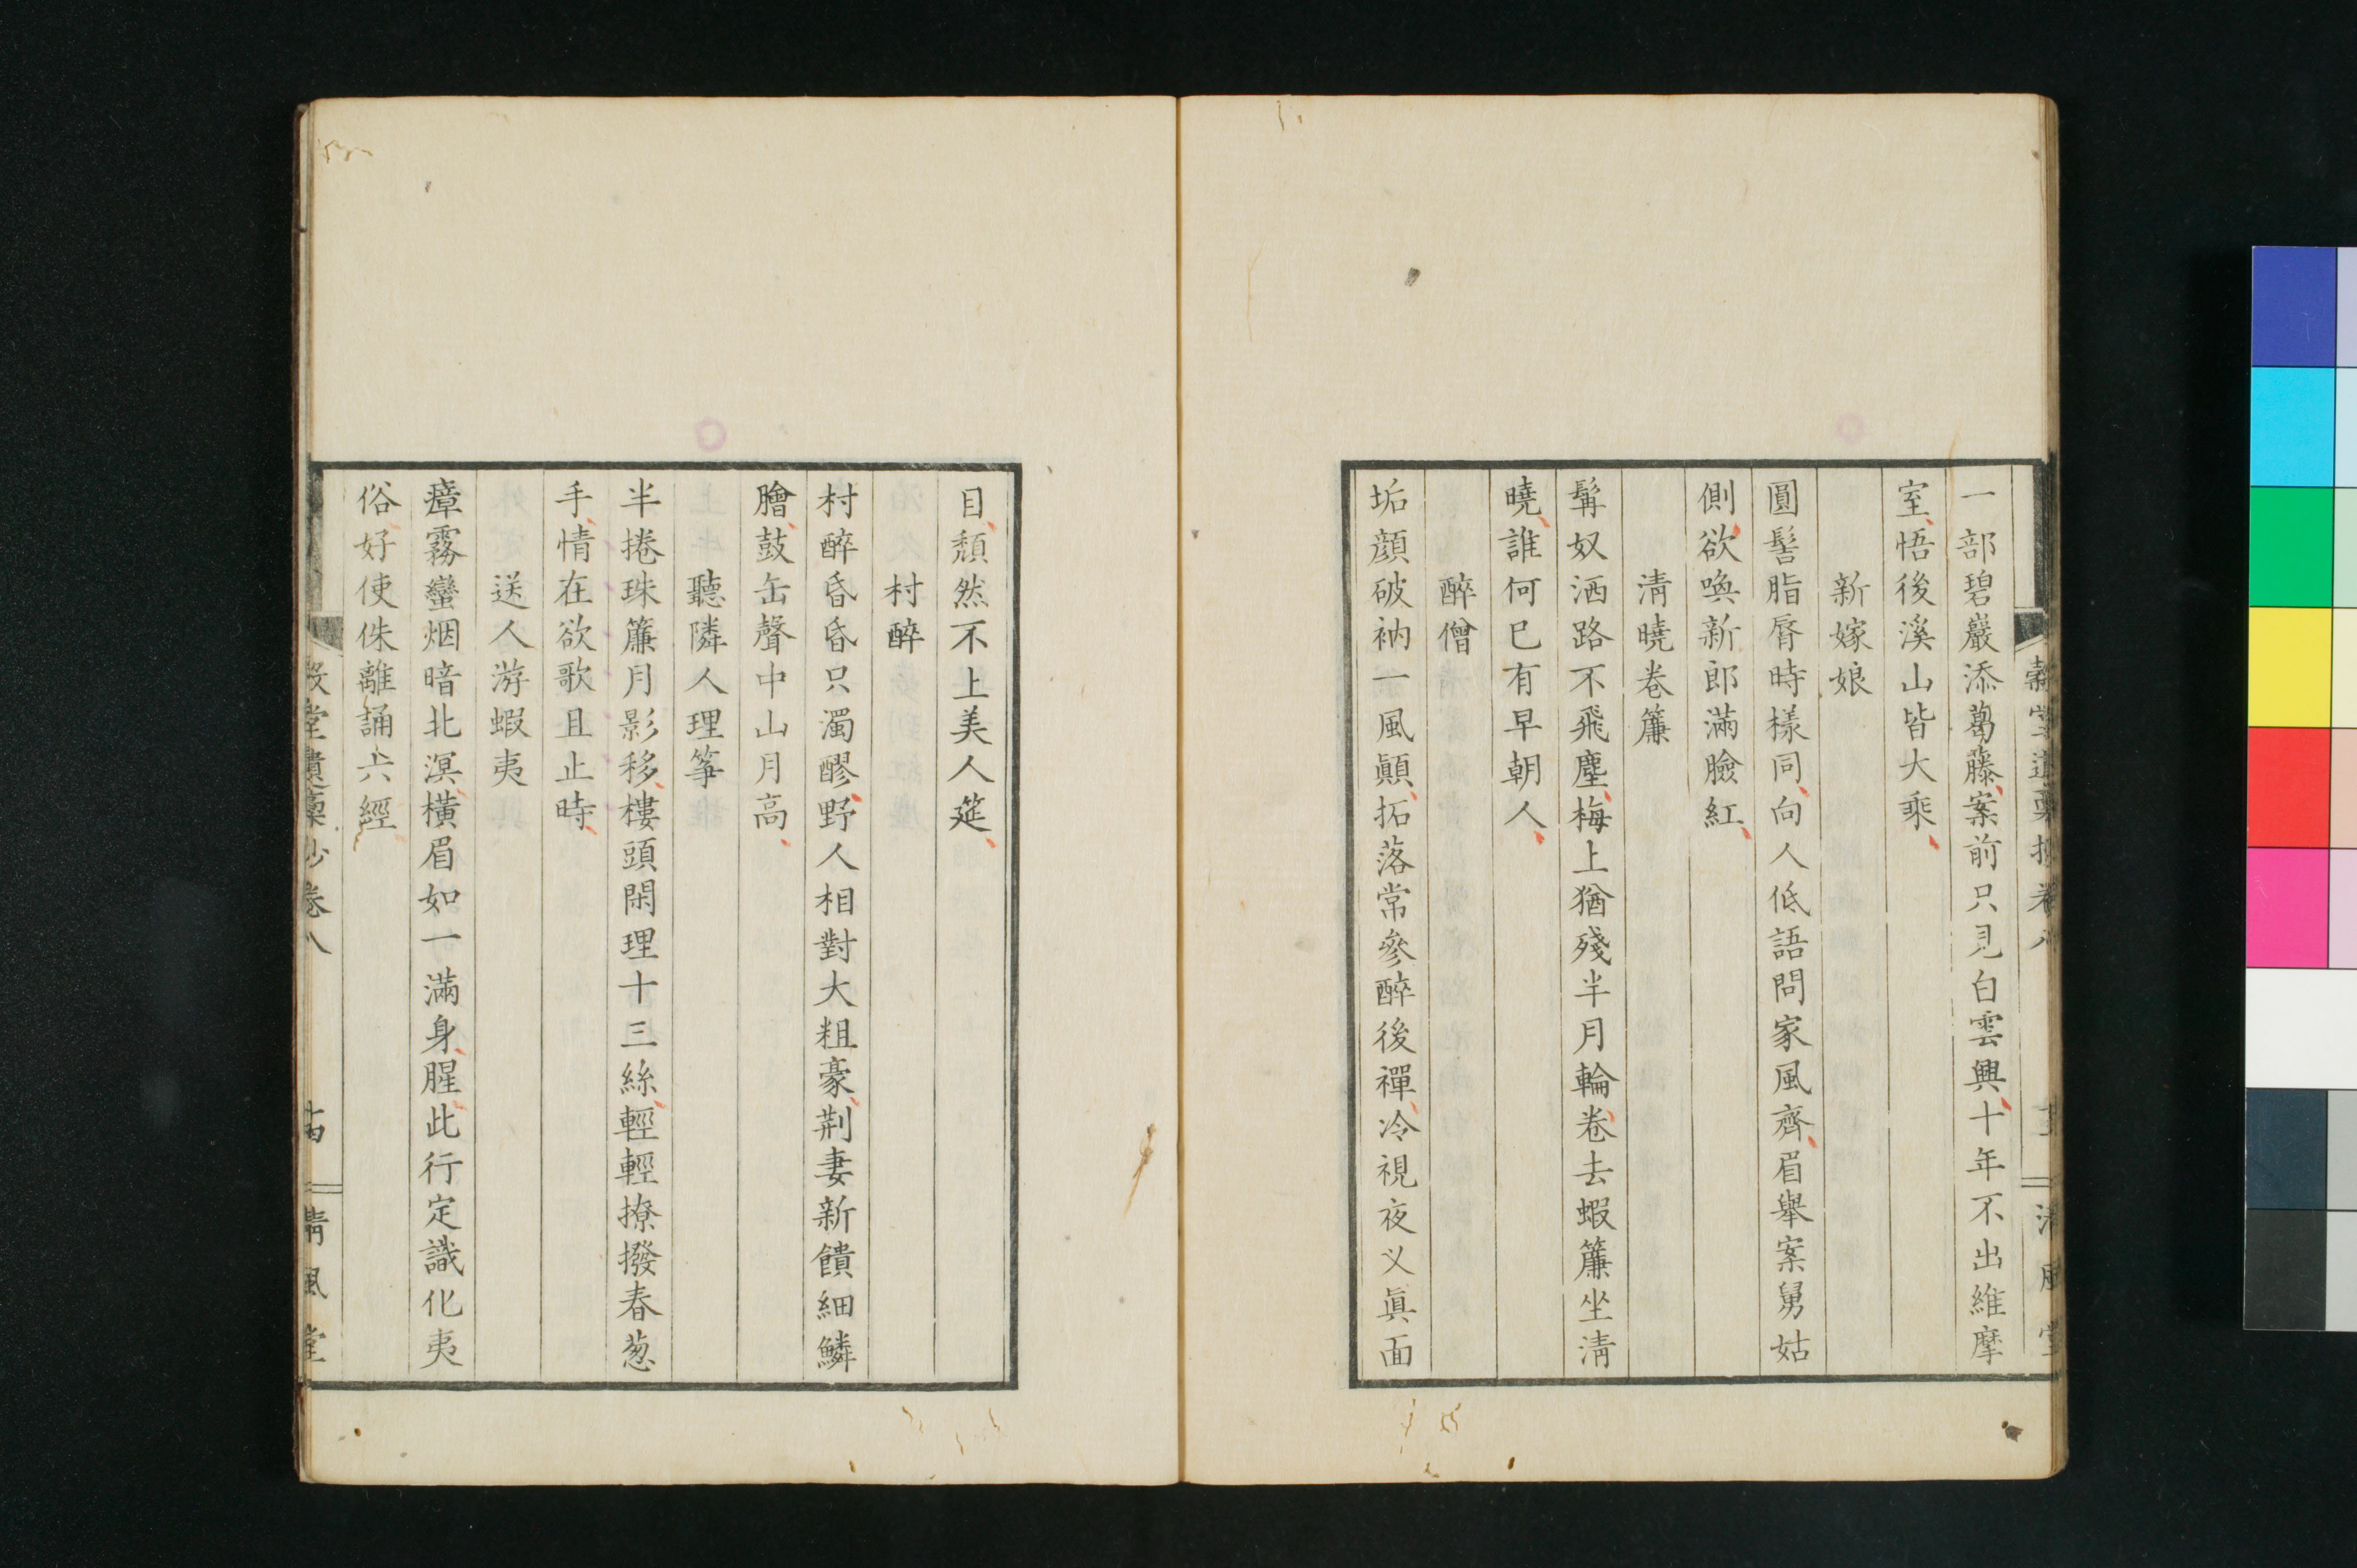 一部碧巖添葛藤案前只見白雲興十年不出維摩
室悟後溪山皆大乘
新嫁娘
圓髻脂脣時樣同向人低語問家風齊眉舉案舅姑
側欲喚新郎滿臉紅
淸曉卷簾
髯奴洒路不飛塵梅上猶殘半月輪卷去蝦簾坐淸
曉誰何已有早朝人
醉僧
垢顔破衲一風顚拓落常參醉後禪冷視夜叉眞面
目頽然不上美人筵
村醉
村醉昏昏只濁醪野人相對大粗豪荆妻新饋細鱗
膾鼓缶聲中山月高
聽隣人理筝
半捲珠簾月影移樓頭閑理十三絲輕輕撩撥春葱
手情在欲歌且止時
送人游蝦夷
瘴霧蠻烟暗北溟橫眉如一滿身腥此行定識化夷
俗好使侏離誦六經
堂遺稾抄卷八
十四
淸風堂